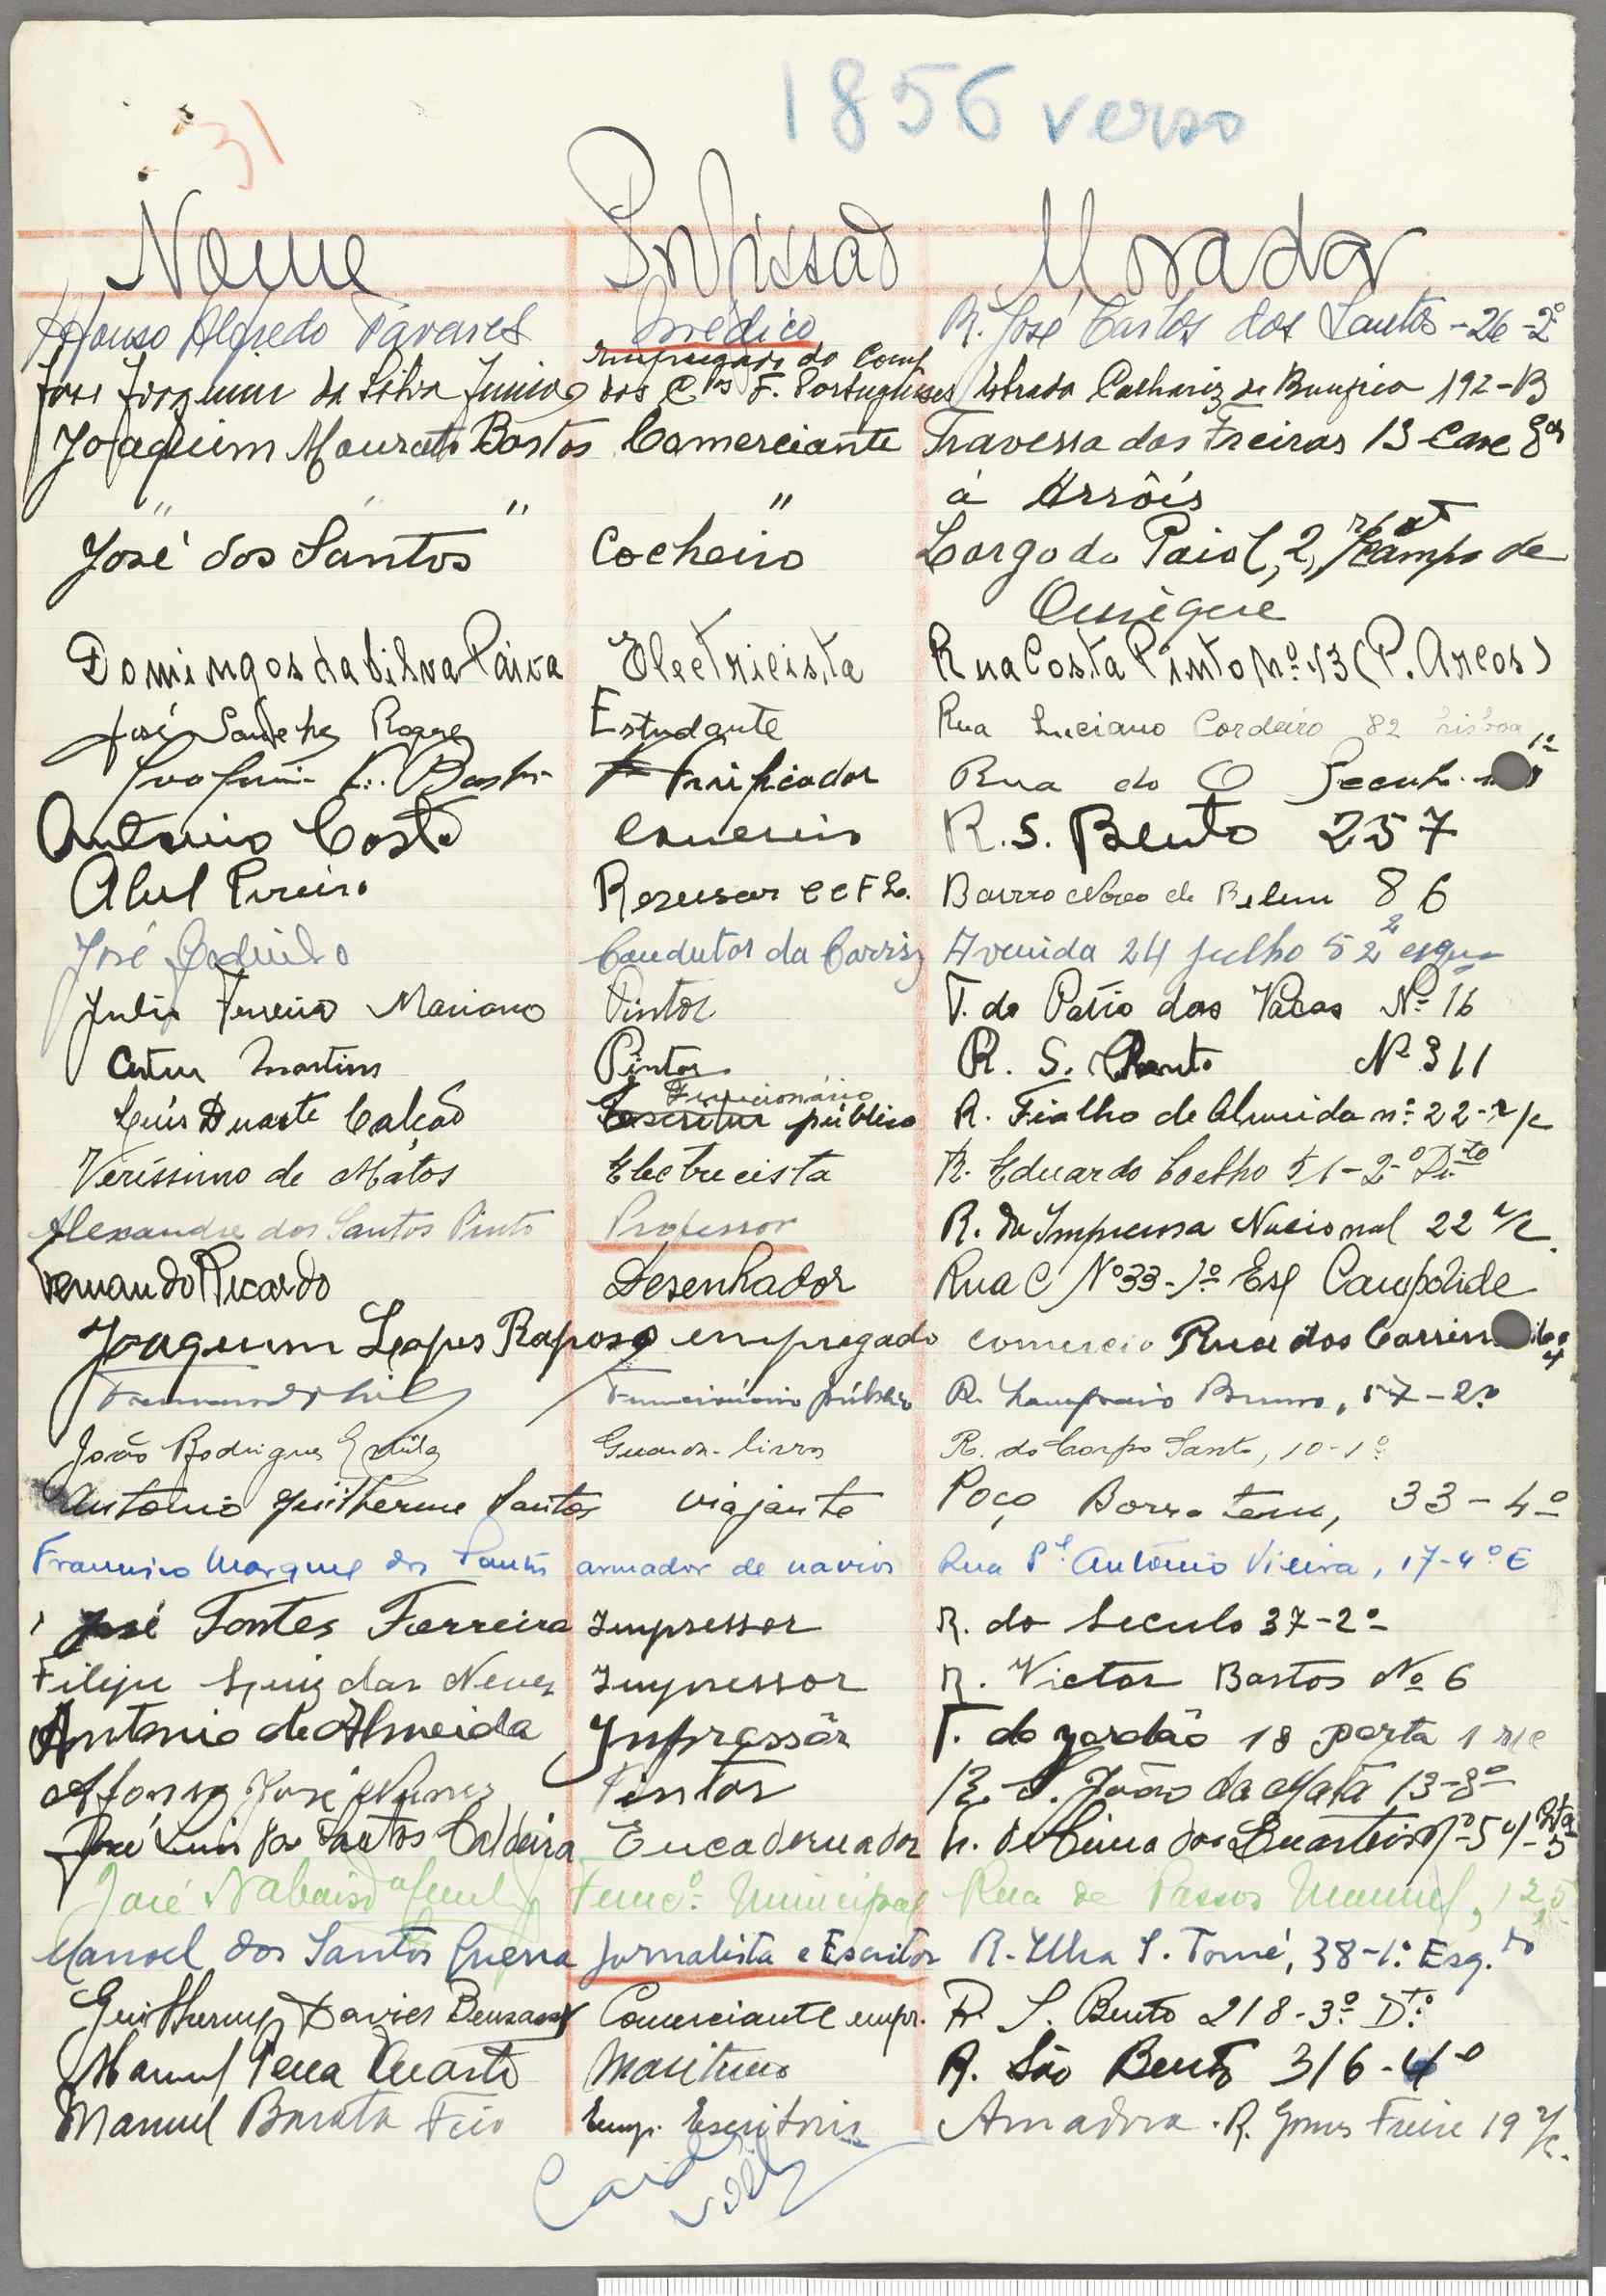 1856 verso
31
Nome Profissão Morada
Afonso Alfredo Tavares Médico R. José Carlos dos Santos - 26 - 2º
Empregado do Comf
José Joaquim da Silva Junior dos Cos F. Portugueses Estrada Calhariz de Bemfica 192-B
Joaquim Mourato Bastos Comerciante Travessa das Freiras 13 Cave
" " " " á Arrôis
José dos Santos Cocheiro Largo do Paiol, 2, r/c Campo de
Ourique
Domingos da Silva Paiva Electricista Rua Costa Pinto nº 43 (P. Arcos)
José Sanchez Estudante Rua Luciano Cordeiro 82 Lisboa 1º
Bastos Rua do O
António Costa R. S. Bento 257
Abel Pereira Revisor C C F L. Bairro Novo de Belem 86
José Condutor da Carris Avenida 24 Julho 52 2 esqu
Julio Ferreira Mariano Pintor T. do Patio das Vacas Nº 16
Artur Martins Pintor R. S. Bento Nº 311
Funcionário
Luís Duarte Calção Escritur público R. Fialho de Almeida nº 22-r/c
Veríssimo de Mátos Electricista R. Eduardo Coelho 51-2º Dito
Alexandre dos Santos Pinto Professor R. da Imprensa Nacional 22 r/c
Fernando Ricardo Desenhador Rua C Nº 33-1º Esq Campolide
Joaquim Lopes Raposo empregado comercio Rua dos
Funcionário público R. Sampaio Bruno, 57-2º
João Rodrigues Guarda-livros R. do Corpo Santo, 10-1º
António Guilherme Santos viajante Poço Borratem, 33-4º
Francisco Marques dos Santos armador de navios Rua Pe. António Vieira, 17-4º E
José Fontes Ferreira Impressor R. do Seculo 37-2º
Filipe Luiz das Neves Impressor R. Victor Bastos Nº 6
António de Almeida Impressôr T. do Jordão 18 porta 1 r/c
Afonso José Nunes Pintor R. S. João da Mata 13-3º
José Luis dos Santos Caldeira Encadernador R. de Cima dos Quarteis Nº 54 Pta 3
José Nabais Func.º Municipal Rua de Passos Manuel, 12
Manoel dos Santos Guerra Jornalista e Escritor R. Ilha S. Tomé, 38-1.º Esq.do
Guilherme Xavier Comerciante empr. R. S. Bento 218-3º Dto
Manuel Pena Duarte Maritimo R. São Bento 316-4º
Manuel Barata Feio Emp. Escritorio Amadora. R. Gomes Freire 19 r/c.